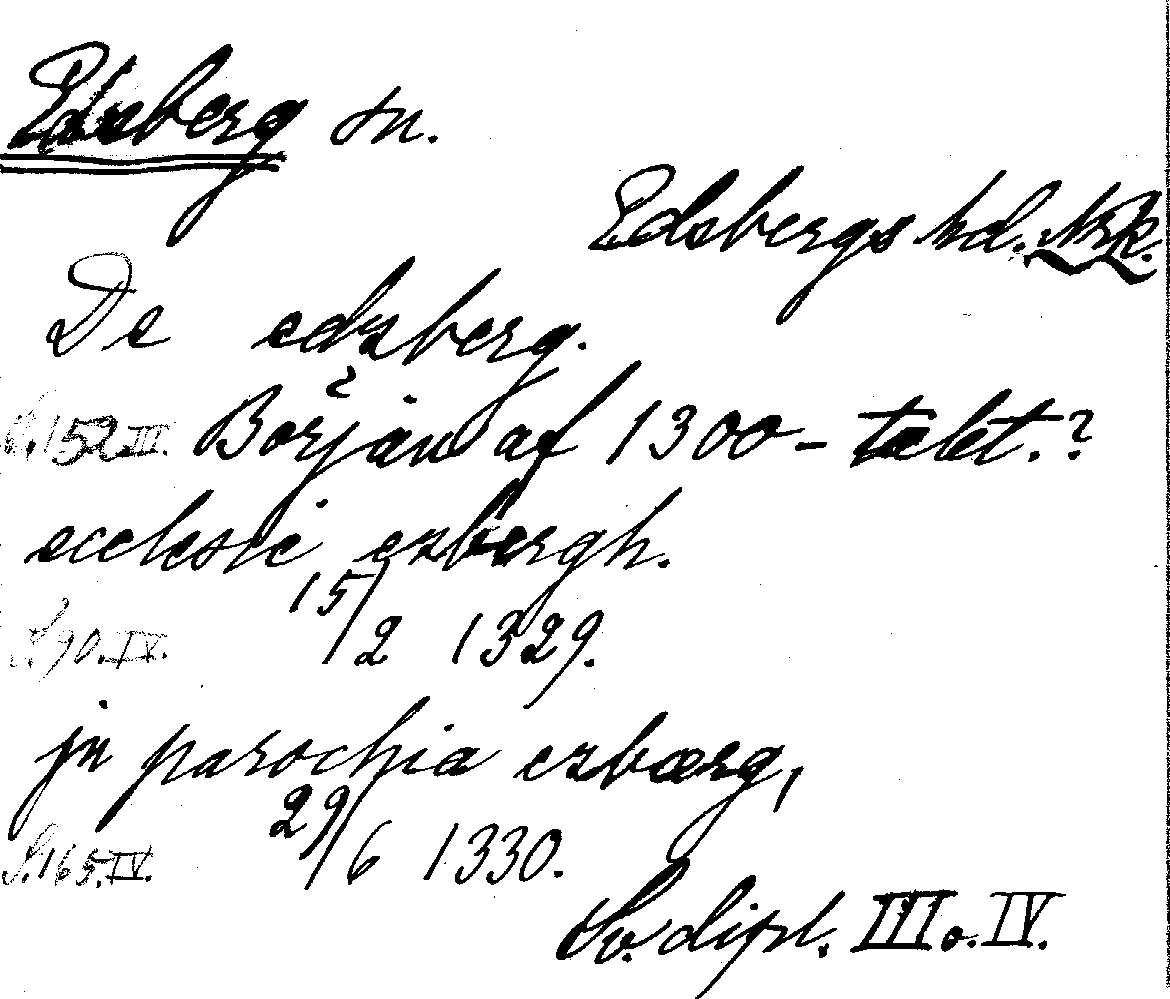 Edsberg sn.
Edsbergs hd. Nrk.
De edzberg.
S. 152 III. Början af 1300-talet.?
ecclesie ezbergh.
15/2 1329.
S. 90. IV.
jn parochia ezbærg,
29/6 1330.
S. 165. IV.
Sv. dipl. III o. IV.